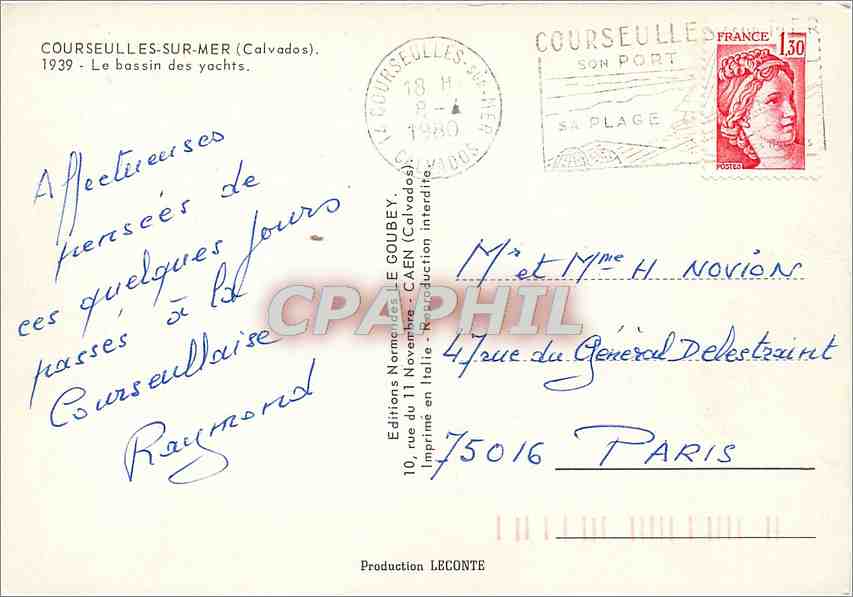 COURSEULLES-SUR-MER (Calvados).
1939 - Le bassin des yachts.
Affectueuses
pensées de
ces quelques jours
passés à la
Courseullaise
Raymond
14 COURSEULLES-SUR-MER
18 H
8 - 4
1980
CALVADOS
COURSEULLES SUR MER
SON PORT
SA PLAGE
FRANCE 1,30
POSTES
Editions Normandes LE GOUBEY.
10, rue du 11 Novembre - CAEN (Calvados)
Imprimé en Italie - Reproduction interdite.
CPAPHIL
Mr et Mme H NOVION
47 rue du Général Delestraint
75016 PARIS
Production LECONTE